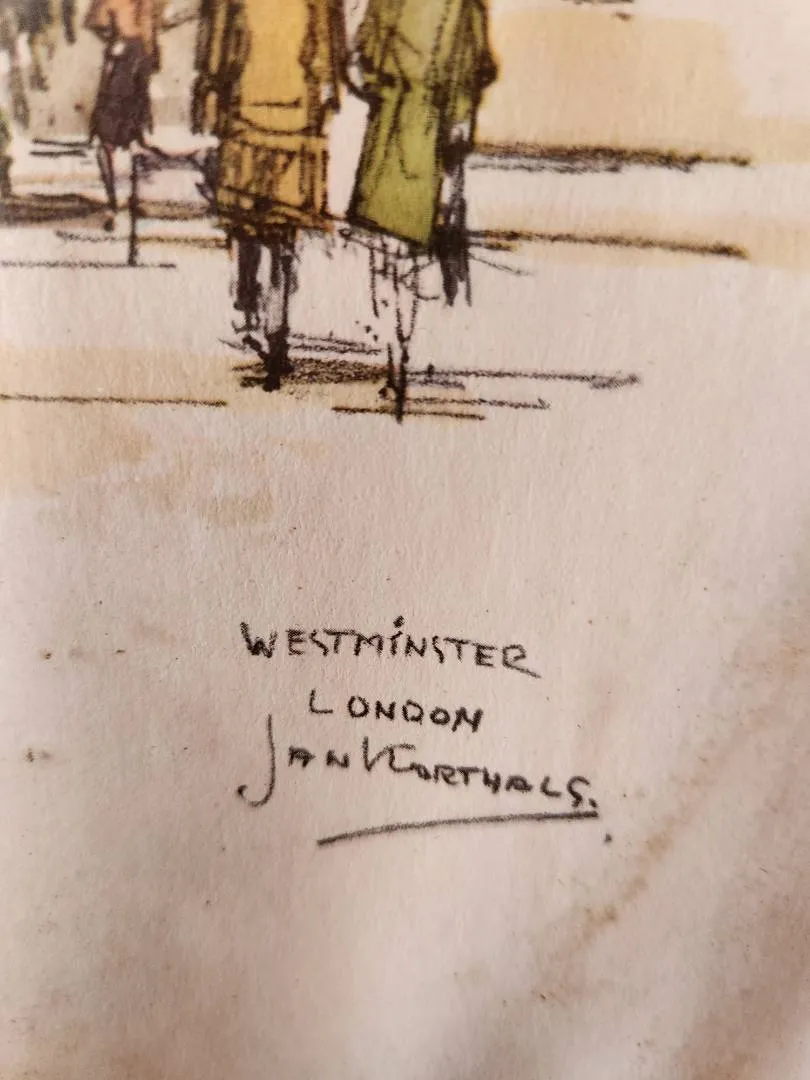 WESTMINSTER
LONDON
JAN KORTHALS.